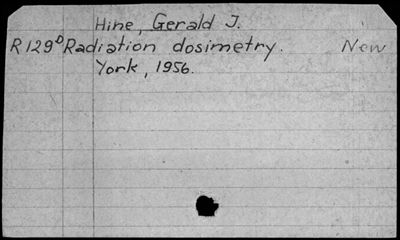 Hine, Gerald J.
R129ᴰ Radiation dosimetry. New
York, 1956.